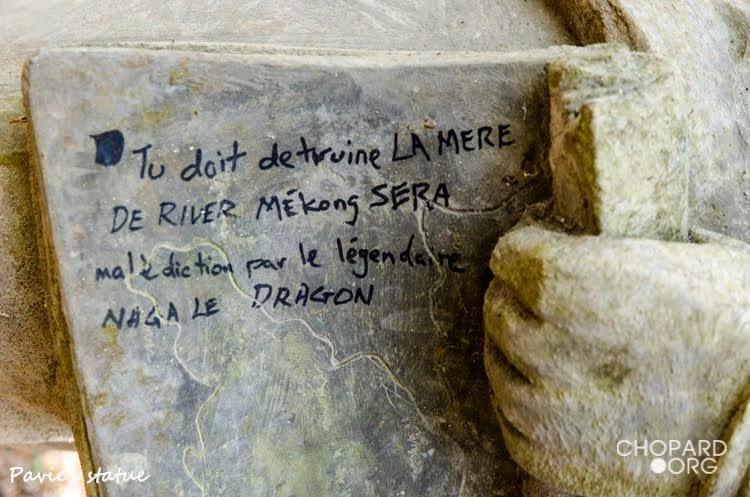 Tu doit detruine LA MERE
DE RIVER Mékong SERA
malèdiction par le légendaire
NAGA LE DRAGON
Pavie statue
CHOPARD
ORG